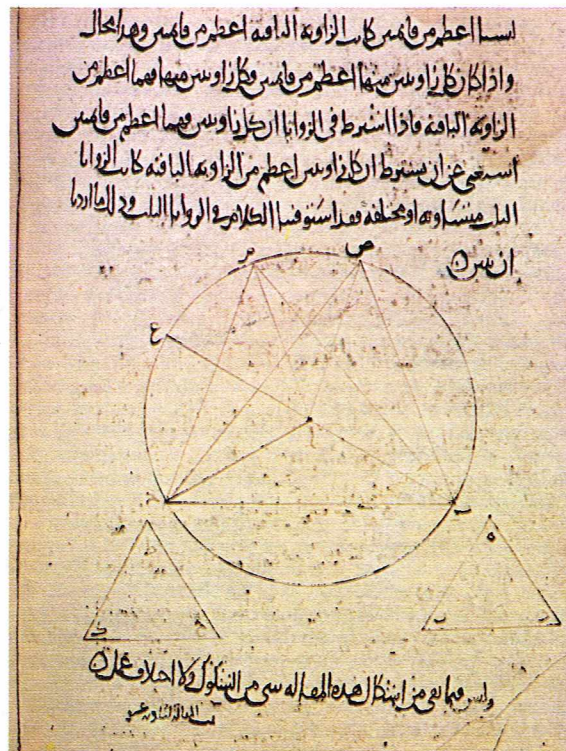 اعظم من قائمتين كانت الزاوية الباقية اعظم من قائمتين وهذا محال
واذا كان كل زاويتين منها اعظم من قائمتين وكل زاويتين منها فهما اعظم من
الزاوية الباقية فاذا اشترط في الزوايا ان كل زاويتين فهما اعظم من قائمتين
استغنى عن ان يشترط ان كل زاويتين اعظم من الزاوية الباقية كانت الزوايا
الثلث متساوية او مختلفة فقد استوفينا الكلام في الزوايا الثلث وذلك ما اردنا
ان نبين
ص
ع
ا
ح
ب
ط
ه
ك
وليس فيما بقي من اشكال هذه المقالة شي من الشكوك ولا اختلاف عمل
تمت المقالة